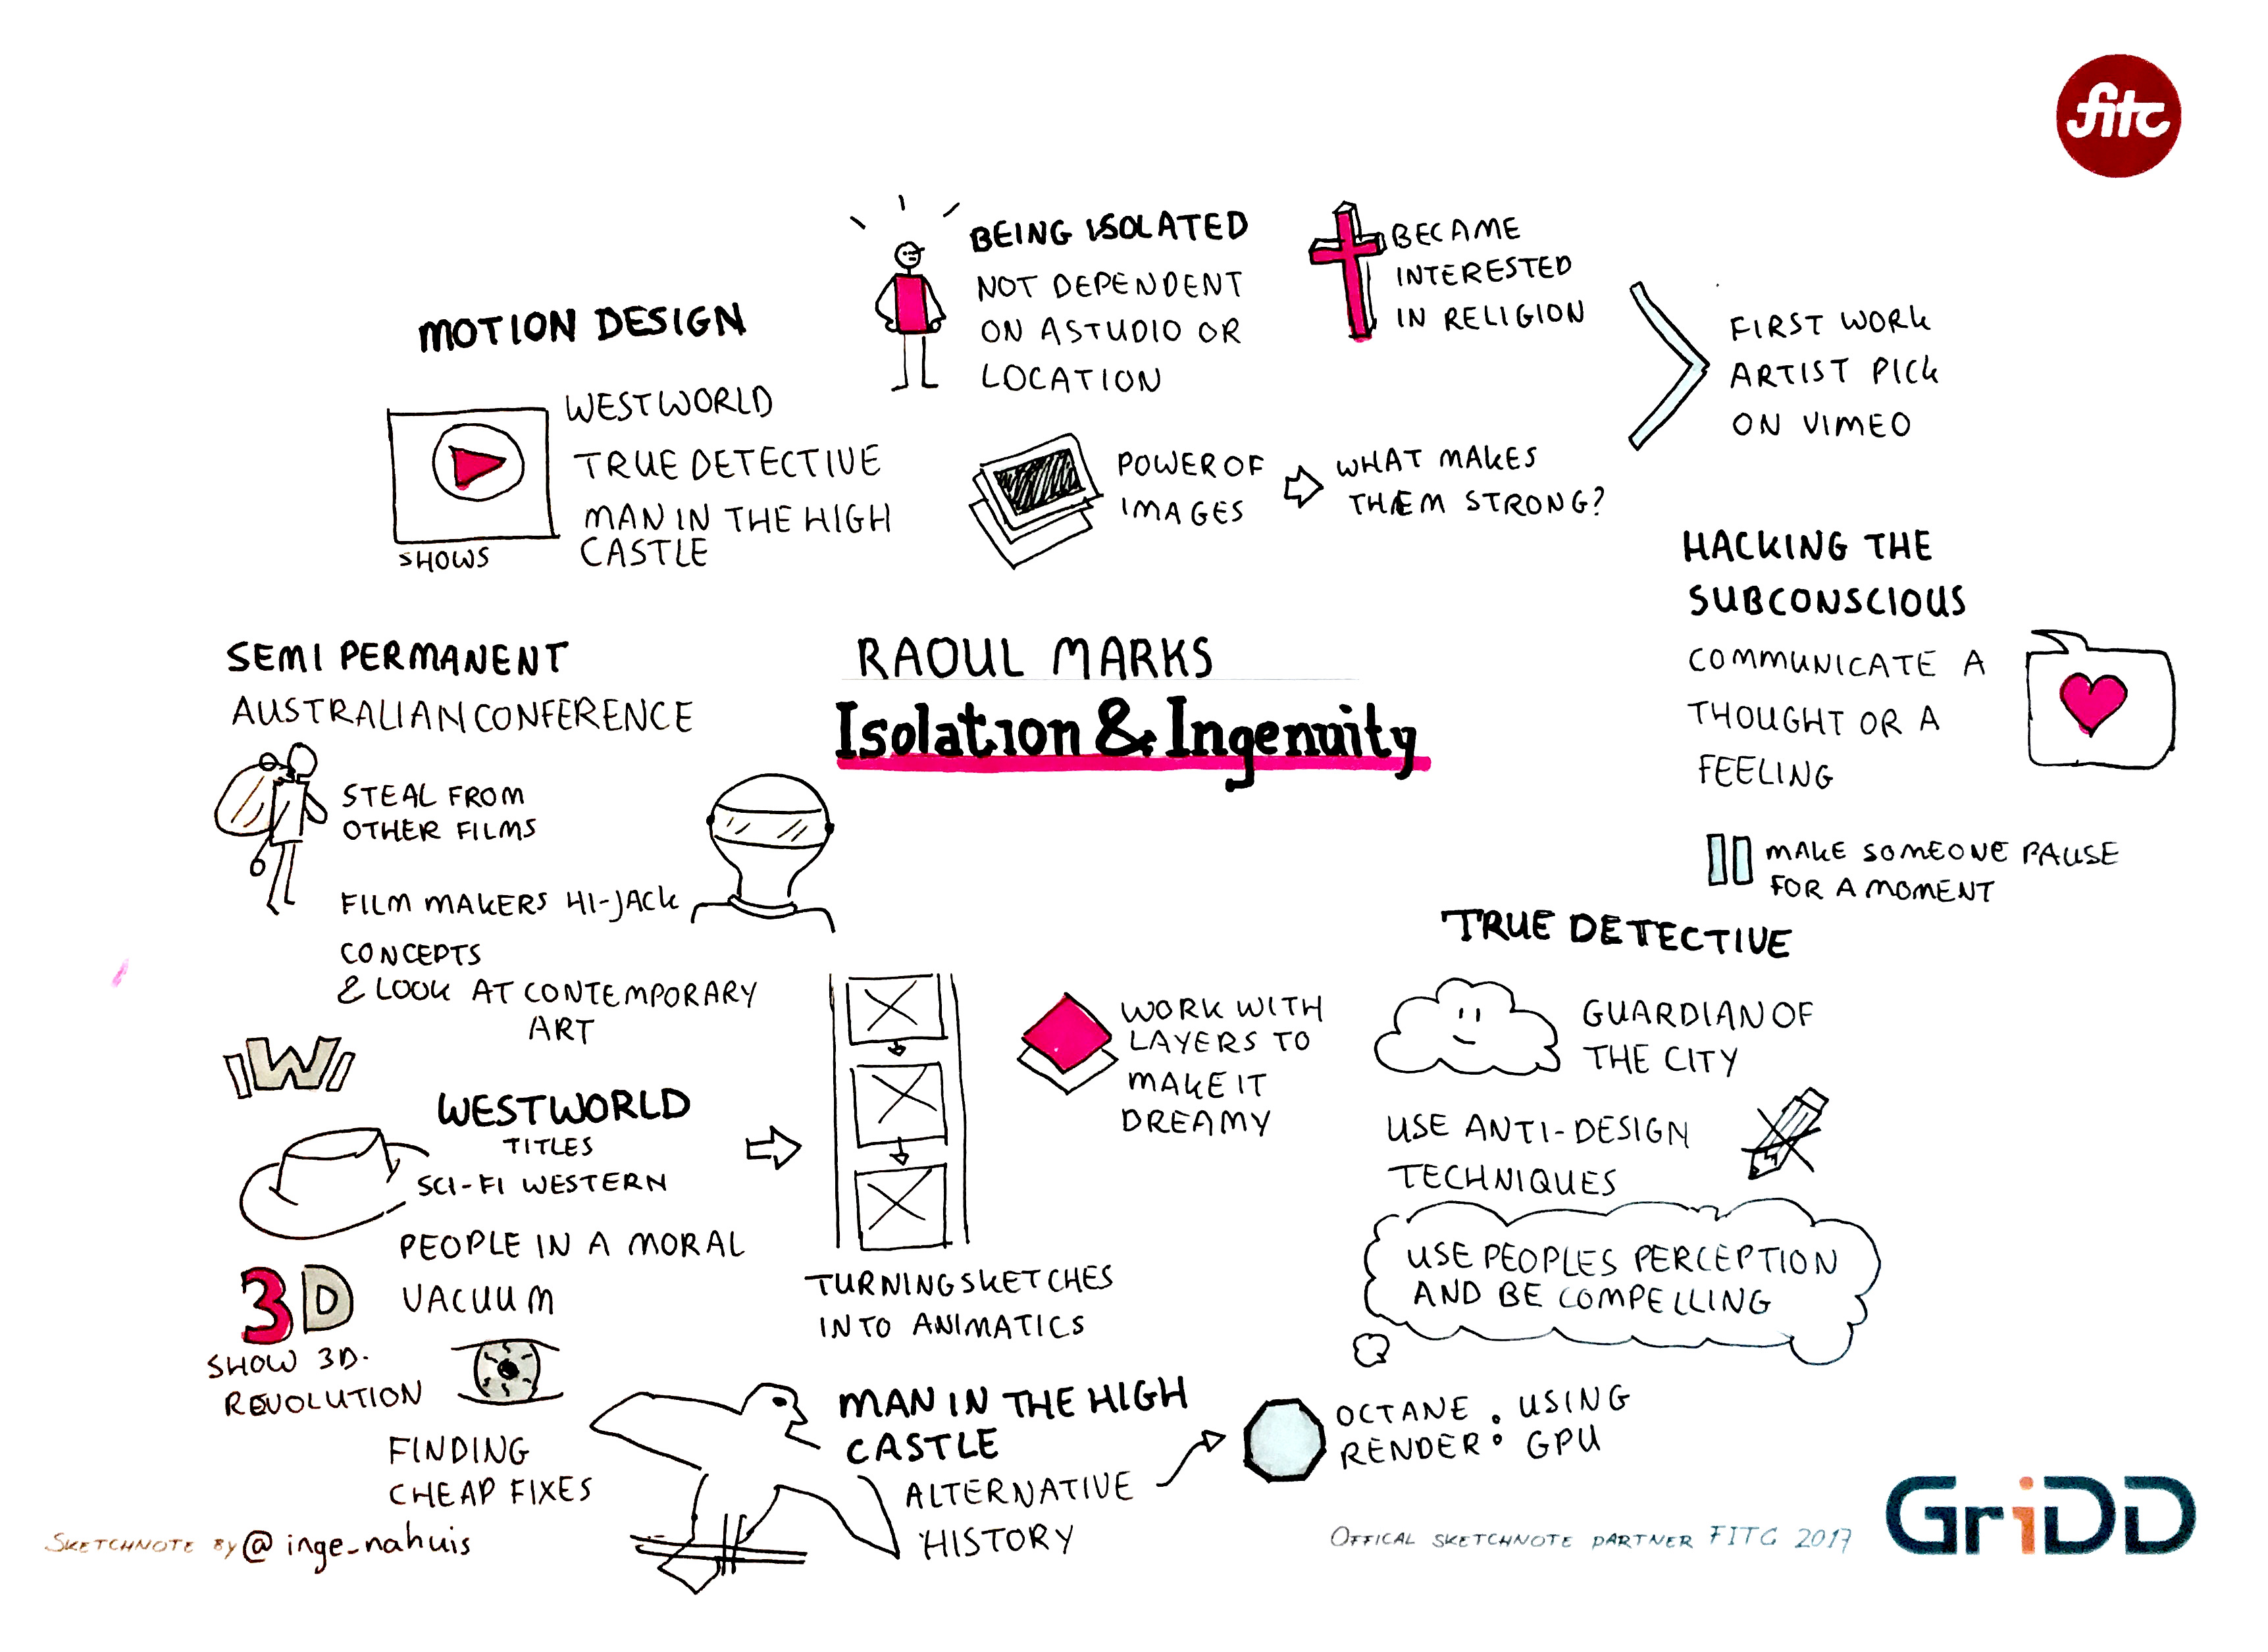 fitc
MOTION DESIGN
SHOWS
WESTWORLD
TRUE DETECTIVE
MAN IN THE HIGH
CASTLE
BEING ISOLATED
NOT DEPENDENT
ON A STUDIO OR
LOCATION
BECAME
INTERESTED
IN RELIGION
POWER OF
IMAGES
WHAT MAKES
THEM STRONG?
FIRST WORK
ARTIST PICK
ON VIMEO
HACKING THE
SUBCONSCIOUS
COMMUNICATE A
THOUGHT OR A
FEELING
MAKE SOMEONE PAUSE
FOR A MOMENT
RAOUL MARKS
Isolation & Ingenuity
SEMI PERMANENT
AUSTRALIAN CONFERENCE
STEAL FROM
OTHER FILMS
FILM MAKERS HI-JACK
CONCEPTS
& LOOK AT CONTEMPORARY
ART
W
WESTWORLD
TITLES
SCI-FI WESTERN
PEOPLE IN A MORAL
VACUUM
3D
SHOW 3D-
REVOLUTION
FINDING
CHEAP FIXES
TURNING SKETCHES
INTO ANIMATICS
WORK WITH
LAYERS TO
MAKE IT
DREAMY
TRUE DETECTIVE
GUARDIAN OF
THE CITY
USE ANTI-DESIGN
TECHNIQUES
USE PEOPLES PERCEPTION
AND BE COMPELLING
MAN IN THE HIGH
CASTLE
ALTERNATIVE
HISTORY
OCTANE : USING
RENDER GPU
SKETCHNOTE BY @inge_nahuis
OFFICAL SKETCHNOTE PARTNER FITC 2017
GriDD